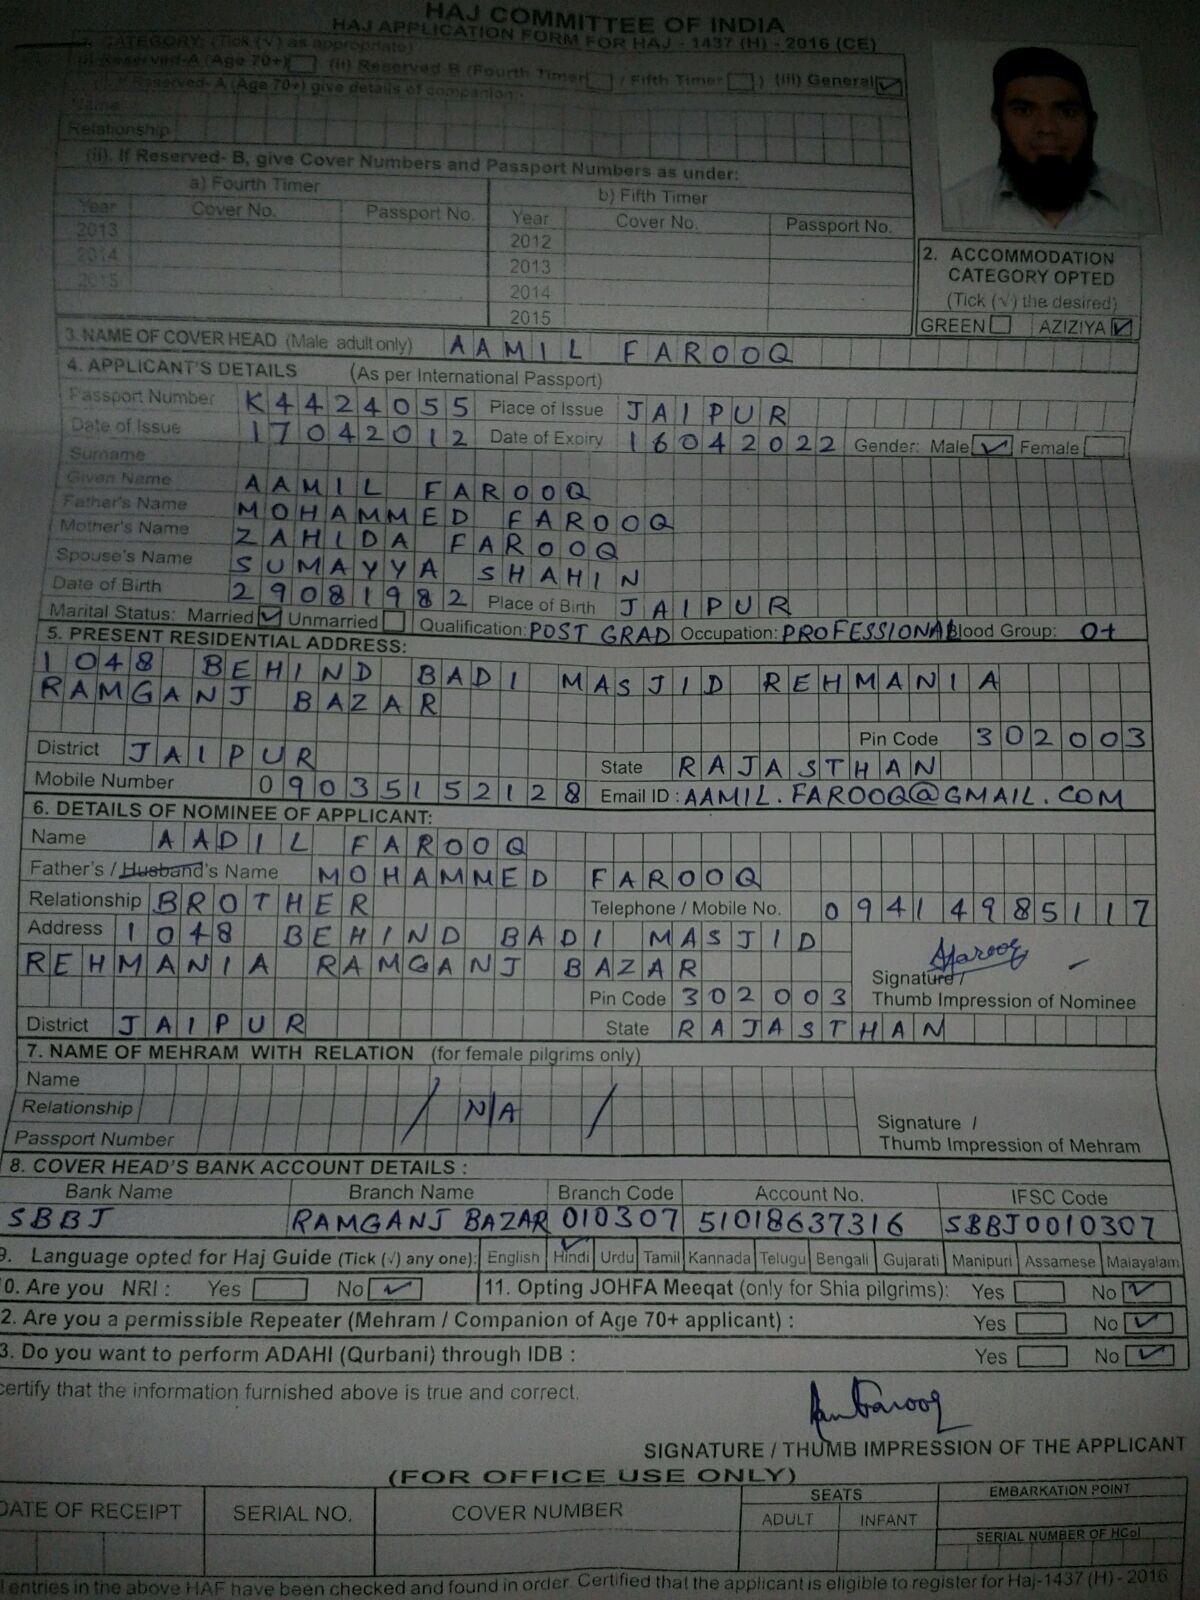 HAJ COMMITTEE OF INDIA
HAJ APPLICATION FORM FOR HAJ - 1437 (H) - 2016 (CE)
CATEGORY: (Tick (√) as appropriate)
(i) Reserved-A (Age 70+) (ii) Reserved-B (Fourth Timer / Fifth Timer ) (iii) General ✓
If Reserved- A (Age 70+) give details of companion:-
Name
Relationship
(ii). If Reserved- B, give Cover Numbers and Passport Numbers as under:
a) Fourth Timer b) Fifth Timer
Year Cover No. Passport No. Year Cover No. Passport No.
2013 2012
2014 2013
2015 2014
2015
2. ACCOMMODATION
CATEGORY OPTED
(Tick (√) the desired)
GREEN AZIZIYA ✓
3. NAME OF COVER HEAD (Male adult only) AAMIL FAROOQ
4. APPLICANT'S DETAILS (As per International Passport)
Passport Number K4424055 Place of Issue JAIPUR
Date of Issue 17042012 Date of Expiry 16042022 Gender: Male ✓ Female
Surname
Given Name AAMIL FAROOQ
Father's Name MOHAMMED FAROOQ
Mother's Name ZAHIDA FAROOQ
Spouse's Name SUMAYYA SHAHIN
Date of Birth 29081982 Place of Birth JAIPUR
Marital Status: Married ✓ Unmarried Qualification: POST GRAD Occupation: PROFESSIONAL Blood Group: O+
5. PRESENT RESIDENTIAL ADDRESS:
1048 BEHIND BADI MASJID REHMANIA
RAMGANJ BAZAR
Pin Code 302003
District JAIPUR State RAJASTHAN
Mobile Number 09035152128 Email ID : AAMIL.FAROOQ@GMAIL.COM
6. DETAILS OF NOMINEE OF APPLICANT:
Name AADIL FAROOQ
Father's / Husband's Name MOHAMMED FAROOQ
Relationship BROTHER Telephone / Mobile No. 09414985117
Address 1048 BEHIND BADI MASJID
REHMANIA RAMGANJ BAZAR
Afarooq
Signature /
Thumb Impression of Nominee
Pin Code 302003
District JAIPUR State RAJASTHAN
7. NAME OF MEHRAM WITH RELATION (for female pilgrims only)
Name
Relationship / N/A /
Passport Number
Signature /
Thumb Impression of Mehram
8. COVER HEAD'S BANK ACCOUNT DETAILS :
Bank Name Branch Name Branch Code Account No. IFSC Code
SBBJ RAMGANJ BAZAR 010307 51018637316 SBBJ0010307
9. Language opted for Haj Guide (Tick (√) any one): English Hindi ✓ Urdu Tamil Kannada Telugu Bengali Gujarati Manipuri Assamese Malayalam
0. Are you NRI : Yes No ✓ 11. Opting JOHFA Meeqat (only for Shia pilgrims): Yes No ✓
2. Are you a permissible Repeater (Mehram / Companion of Age 70+ applicant) : Yes No ✓
3. Do you want to perform ADAHI (Qurbani) through IDB : Yes No ✓
certify that the information furnished above is true and correct.
SIGNATURE / THUMB IMPRESSION OF THE APPLICANT
(FOR OFFICE USE ONLY)
DATE OF RECEIPT SERIAL NO. COVER NUMBER SEATS EMBARKATION POINT
ADULT INFANT
SERIAL NUMBER OF HCoI
l entries in the above HAF have been checked and found in order. Certified that the applicant is eligible to register for Haj-1437 (H) - 2016